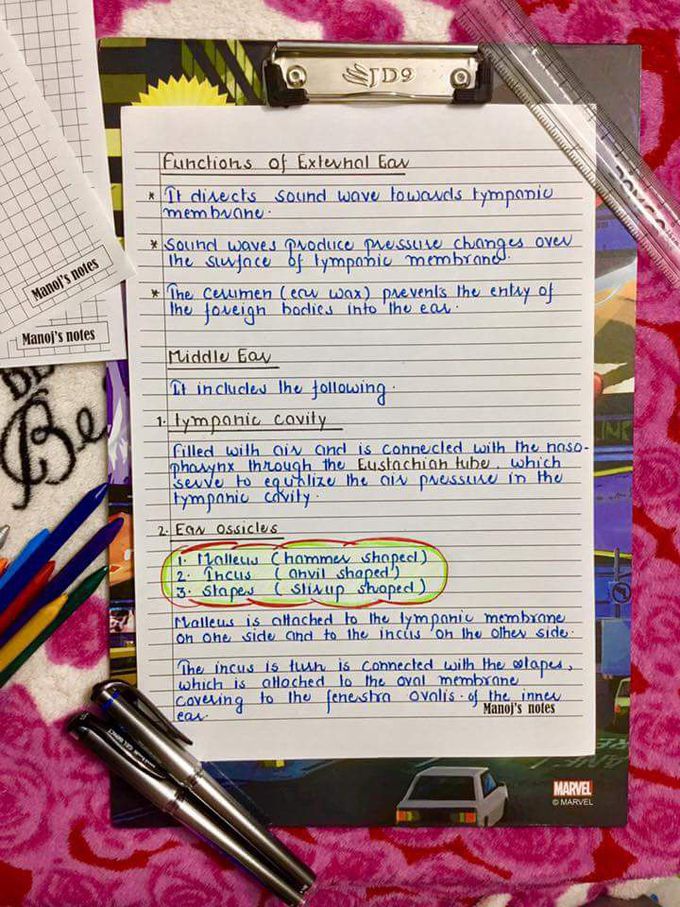 JD9
Functions of External Ear
* It directs sound wave towards tympanic
membrane.
* Sound waves produce pressure changes over
the surface of tympanic membrane.
* The cerumen (ear wax) prevents the entry of
the foreign bodies into the ear.
Middle Ear
It includes the following.
1. Tympanic cavity
Filled with air and is connected with the naso-
pharynx through the Eustachian tube, which
serve to equalize the air pressure in the
tympanic cavity.
2. Ear Ossicles
1. Malleus (hammer shaped)
2. Incus (anvil shaped)
3. Stapes (stirup shaped)
Malleus is attached to the tympanic membrane
on one side and to the incus on the other side.
The incus is turn is connected with the stapes,
which is attached to the oval membrane
covering to the fenestra ovalis of the inner
ear.
Manoj's notes
Manoj's notes
Manoj's notes
Be
MARVEL
© MARVEL